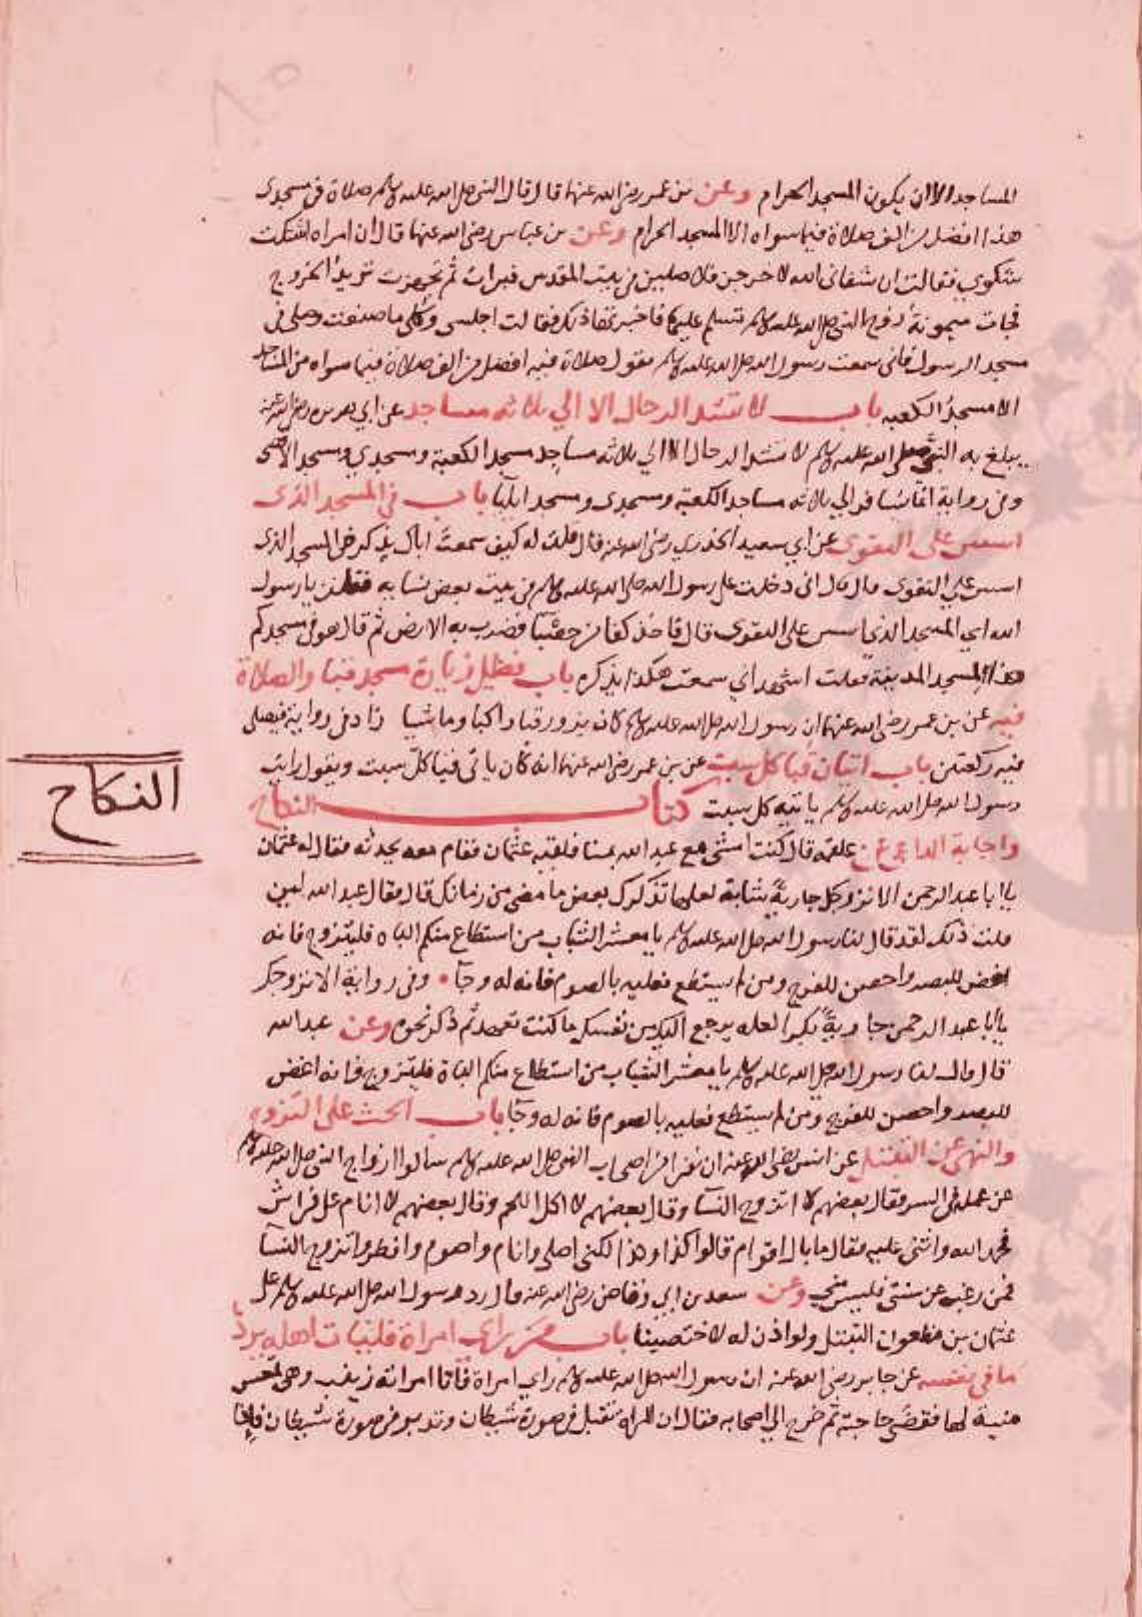 المساجد الا ان يكون المسجد الحرام وعن بن عمر رضي الله عنهما قال قال النبي صلى الله عليه وسلم صلاة في مسجدي
هذا افضل من الف صلاة فيما سواه الا المسجد الحرام وعن بن عباس رضي الله عنهما قال ان امراه اشتكت
شكوي فقالت ان شفاني الله لاخرجن فلاصلين في بيت المقدس فبرات ثم تجهزت تريد الخروج
فجات ميمونة زوج النبي صلى الله عليه وسلم تسلم عليها فاخبرتها ذلك فقالت اجلسى وكلى ما صنعت وصلى في
مسجد الرسول فانى سمعت رسول الله صلى الله عليه وسلم يقول صلاة فيه افضل من الف صلاة فيما سواه من المساجد
الا مسجد الكعبه باب لا تشد الرحال الا الي ثلاثه مساجد عن ابي هريره رضي الله عنه
يبلغ به النبي صلى الله عليه وسلم لا تشد الرحال الا الي ثلاثه مساجد مسجد الكعبة ومسجدي ومسجد الاقصى
وفي رواية انما يسافر الي ثلاثه مساجد الكعبة ومسجدى ومسجد ايليا باب في المسجد الذى
اسس على التقوى عن ابي سعيد الخدري رضي الله عنه قال قلت له كيف سمعت اباك يذكر في المسجد الذى
اسس علي التقوى قال قال ابى دخلت على رسول الله صلى الله عليه وسلم في بيت بعض نسايه فقلت يا رسول
الله اي المسجد الذي اسس على التقوى قال فاخذ كفا من حصباء فضرب به الارض ثم قال هو مسجدكم
هذا المسجد المدينة فقلت اشهد اني سمعت هكذا يذكره باب فظيل زيارة مسجد قبا والصلاة
فيه عن بن عمر رضي الله عنهما ان رسول الله صلى الله عليه وسلم كان يزور قبا راكبا وماشيا زاد في رواية فيصلى
فيه ركعتين باب اتيان قبا كل سبت عن بن عمر رضي الله عنهما انه كان ياتى قبا كل سبت ويقول رايت
رسول الله صلى الله عليه وسلم ياتيه كل سبت كتاب النكاح
النكاح
واجابة الداعي عن علقمه قال كنت امشى مع عبد الله بمنا فلقيه عثمان فقام معه يحدثه فقال له عثمان
يا ابا عبد الرحمن الا نزوجك جارية شابة لعلها تذكرك بعض ما مضى من زمانك قال فقال عبد الله لين
قلت ذلك لقد قال لنا رسول الله صلى الله عليه وسلم يا معشر الشباب من استطاع منكم الباه فليتزوج فانه
اغض للبصر واحصن للفرج ومن لم يستطع فعليه بالصوم فانه له وجآ وفي رواية الا نزوجك
يا ابا عبد الرحمن جارية بكرا لعله يرجع اليك من نفسك ما كنت تعهد ثم ذكر نحوه وعن عبد الله
قال قال لنا رسول الله صلى الله عليه وسلم يا معشر الشباب من استطاع منكم الباة فليتزوج فانه اغض
للبصر واحصن للفرج ومن لم يستطع فعليه بالصوم فانه له وجآ باب الحث على التزوج
والنهى عن التبتل عن انس رضي الله عنه ان نفرا من اصحاب النبي صلى الله عليه وسلم سالوا ازواج النبي صلى الله عليه وسلم
عن عمله في السر فقال بعضهم لا اتزوج النسآ وقال بعضهم لا اكل اللحم وقال بعضهم لا انام على فراش
فحمد الله واثنى عليه فقال ما بال اقوام قالوا كذا وكذا لكنى اصلى وانام واصوم وافطر واتزوج النسآ
فمن رغب عن سنتى فليس مني وعن سعد بن ابي وقاص رضي الله عنه قال رد رسول الله صلى الله عليه وسلم على
عثمان بن مظعون التبتل ولو اذن له لاختصينا باب من راي امراة فليات اهله يرد
ما في نفسه عن جابر رضي الله عنه ان رسول الله صلى الله عليه وسلم راي امراة فاتا امراته زينب وهى تمعس
منيه لها فقضى حاجته ثم خرج الي اصحابه فقال ان المراه تقبل في صورة شيطان وتدبر في صورة شيطان فاذا